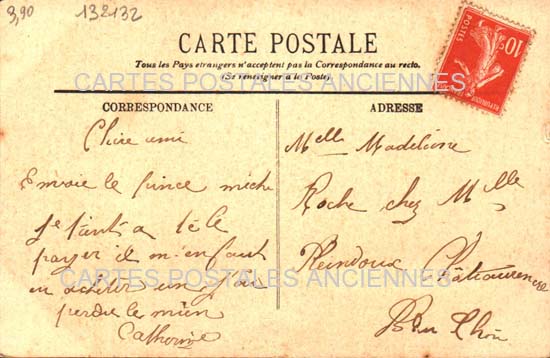 3,90
132132
CARTE POSTALE
Tous les Pays etrangers n'acceptent pas la Correspondance au recto.
(Se renseigner à la Poste)
CARTES POSTALES ANCIENNES
CORRESPONDANCE
ADRESSE
POSTES
10c
Chère amie
Envoie le
payer il m'en faut
en acheter un j'ai
perdu le mien
Catherine
Melle Madeleine
Roche chez Melle
CARTES POSTALES ANCIENNES